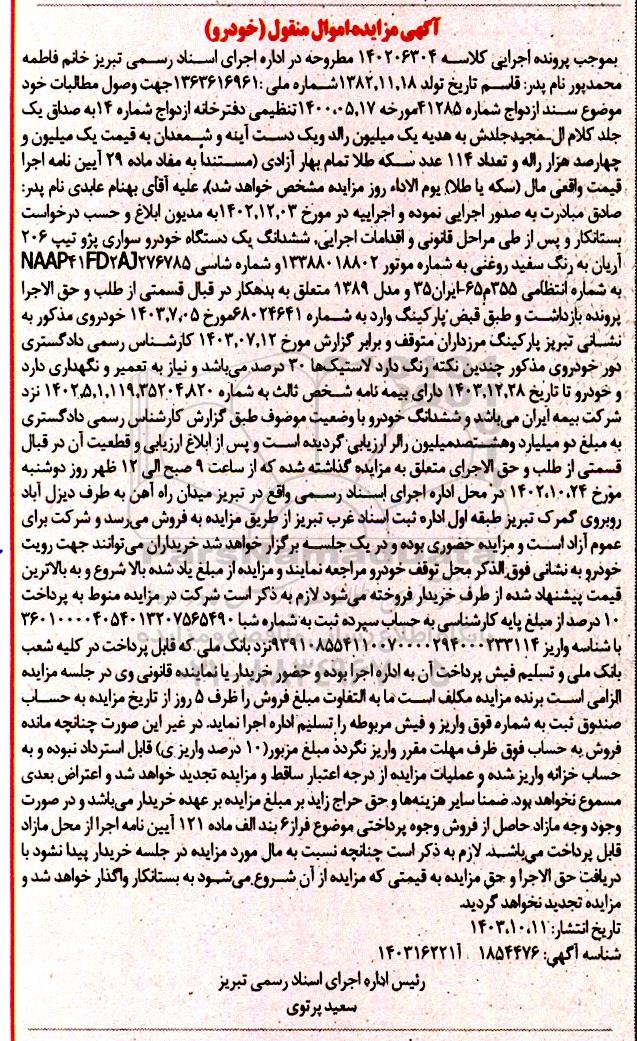 آگهی مزایده اموال منقول (خودرو)
بموجب پرونده اجرایی کلاسه ۱۴۰۲۰۶۳۰۴ مطروحه در اداره اجرای اسناد رسمی تبریز خانم فاطمه
محمدپور نام پدر: قاسم تاریخ تولد ۱۳۸۲,۱۱,۱۸شماره ملی :۱۳۶۳۶۱۶۹۶۱جهت وصول مطالبات خود
موضوع سند ازدواج شماره ۴۱۲۸۵مورخه ۱۴۰۰,۰۵,۱۷تنظیمی دفترخانه ازدواج شماره ۱۴به صداق یک
جلد کلام ال..مجیدجلدش به هدیه یک میلیون رالد ویک دست آینه و شمعدان به قیمت یک میلیون و
چهارصد هزار راله و تعداد ۱۱۴ عدد سکه طلا تمام بهار آزادی (مستنداً به مفاد ماده ۲۹ آیین نامه اجرا
قیمت واقعی مال (سکه یا طلا) یوم الاداء روز مزایده مشخص خواهد شد)، علیه آقای بهنام عابدی نام پدر:
صادق مبادرت به صدور اجرایی نموده و اجراییه در مورخ ۱۴۰۲,۱۲,۰۳به مدیون ابلاغ و حسب درخواست
بستانکار و پس از طی مراحل قانونی و اقدامات اجرایی، ششدانگ یک دستگاه خودرو سواری پژو تیپ ۲۰۶
آریان به رنگ سفید روغنی به شماره موتور ۱۳۳۸۸۰۱۸۸۰۲و شماره شاسی NAAP۴۱FD۲AJ۲۷۶۷۸۵
به شماره انتظامی ۳۵۵م۶۵-ایران۳۵ و مدل ۱۳۸۹ متعلق به بدهکار در قبال قسمتی از طلب و حق الاجرا
پرونده بازداشت و طبق قبض پارکینگ وارد به شماره ۶۸۰۲۴۶۴۱مورخ ۱۴۰۳,۷,۰۵ خودروی مذکور به
نشانی تبریز پارکینگ مرزداران متوقف و برابر گزارش مورخ ۱۴۰۳,۰۷,۱۲ کارشناس رسمی دادگستری
دور خودروی مذکور چندین نکته رنگ دارد لاستیک‌ها ۳۰ درصد می‌باشد و نیاز به تعمیر و نگهداری دارد
و خودرو تا تاریخ ۱۴۰۳,۱۲,۲۸ دارای بیمه نامه شخص ثالث به شماره ۱۴۰۲,۵,۱,۱۱۹,۳۵۲۰۴,۸۲۰ نزد
شرکت بیمه ایران می‌باشد و ششدانگ خودرو با وضعیت موضوف طبق گزارش کارشناس رسمی دادگستری
به مبلغ دو میلیارد وهشتصدمیلیون رالر ارزیابی گردیده است و پس از ابلاغ ارزیابی و قطعیت آن در قبال
قسمتی از طلب و حق الاجرای متعلق به مزایده گذاشته شده که از ساعت ۹ صبح الی ۱۲ ظهر روز دوشنبه
مورخ ۱۴۰۲,۱۰,۲۴ در محل اداره اجرای اسناد رسمی واقع در تبریز میدان راه آهن به طرف دیزل آباد
روبروی گمرک تبریز طبقه اول اداره ثبت اسناد غرب تبریز از طریق مزایده به فروش می‌رسد و شرکت برای
عموم آزاد است و مزایده حضوری بوده و در یک جلسه برگزار خواهد شد خریداران می‌توانند جهت رویت
خودرو به نشانی فوق‌الذکر محل توقف خودرو مراجعه نمایند و مزایده از مبلغ یاد شده بالا شروع و به بالاترین
قیمت پیشنهاد شده از طرف خریدار فروخته می‌شود لازم به ذکر است شرکت در مزایده منوط به پرداخت
۱۰ درصد از مبلغ پایه کارشناسی به حساب سپرده ثبت به شماره شبا ۳۶۰۱۰۰۰۰۴۰۵۴۰۱۳۲۰۷۵۶۵۴۹۰
با شناسه واریز ۹۳۹۱۰۸۵۵۴۱۱۰۰۷۰۰۰۰۲۹۴۰۰۰۲۳۳۱۱۴نزد بانک ملی که قابل پرداخت در کلیه شعب
بانک ملی و تسلیم فیش پرداخت آن به اداره اجرا بوده و حضور خریدار یا نماینده قانونی وی در جلسه مزایده
الزامی است برنده مزایده مکلف است ما به التفاوت مبلغ فروش را ظرف ۵ روز از تاریخ مزایده به حساب
صندوق ثبت به شماره فوق واریز و فیش مربوطه را تسلیم اداره اجرا نماید. در غیر این صورت چنانچه مانده
فروش به حساب فوق ظرف مهلت مقرر واریز نگردد مبلغ مزبور(۱۰ درصد واریز ی) قابل استرداد نبوده و به
حساب خزانه واریز شده و عملیات مزایده از درجه اعتبار ساقط و مزایده تجدید خواهد شد و اعتراض بعدی
مسموع نخواهد بود. ضمنا سایر هزینه‌ها و حق حراج زاید بر مبلغ مزایده بر عهده خریدار می‌باشد و در صورت
وجود وجه مازاد حاصل از فروش وجوه پرداختی موضوع فراز۶ بند الف ماده ۱۲۱ آیین نامه اجرا از محل مازاد
قابل پرداخت می‌باشد. لازم به ذکر است چنانچه نسبت به مال مورد مزایده در جلسه خریدار پیدا نشود با
دریافت حق الاجرا و حق مزایده به قیمتی که مزایده از آن شروع می‌شود به بستانکار واگذار خواهد شد و
مزایده تجدید نخواهد گردید.
تاریخ انتشار: ۱۴۰۳,۱۰,۱۱
شناسه آگهی: ۱۸۵۴۴۷۶ آ۱۴۰۳۱۶۲۲۱
رئیس اداره اجرای اسناد رسمی تبریز
سعید پرتوی